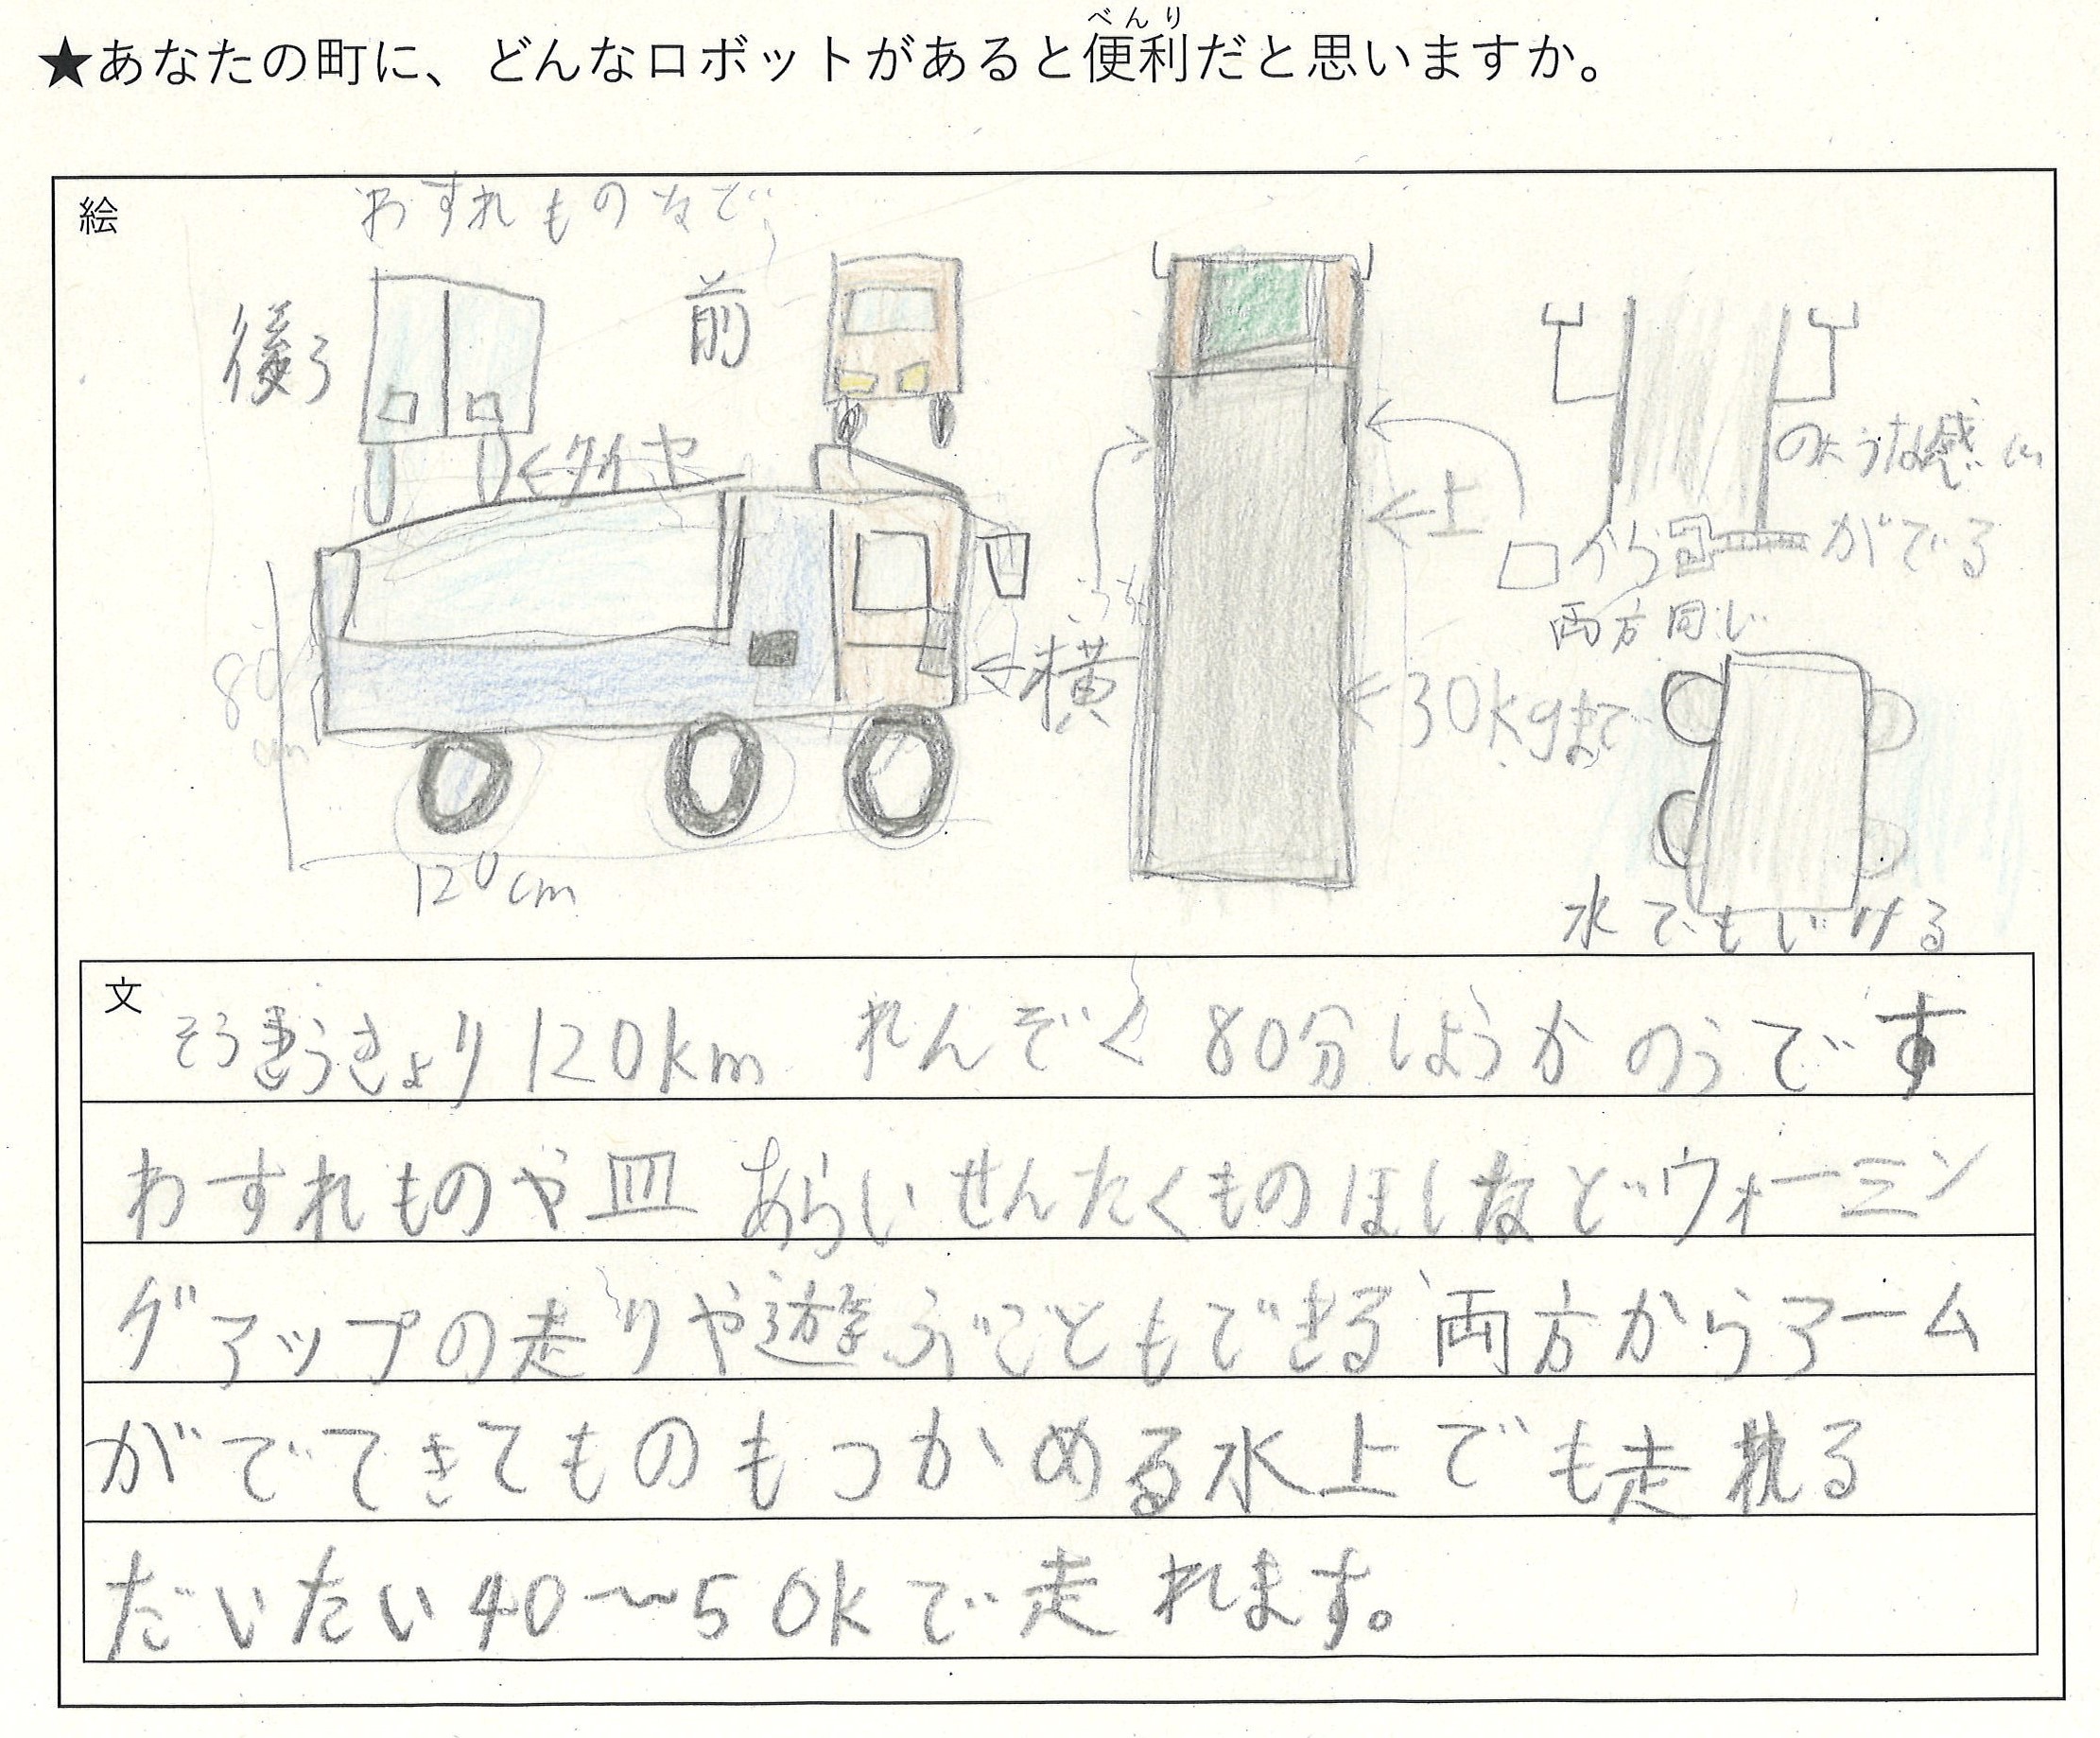 べんり
★あなたの町に、どんなロボットがあると便利だと思いますか。
絵
わすれものなど
後ろ
前
←タイヤ
のような感い
←上
がでる
両方同じ
80cm
←横
←30kgまで
120cm
水でもいける
文
そうこうきょり120km れんぞく80分しようかのうです
わすれものや皿あらいせんたくものほしなどウォーミン
グアップの走りや遊ぶこともできる両方からアーム
がでてきてものもつかめる水上でも走れる
だいたい40〜50kで走れます。